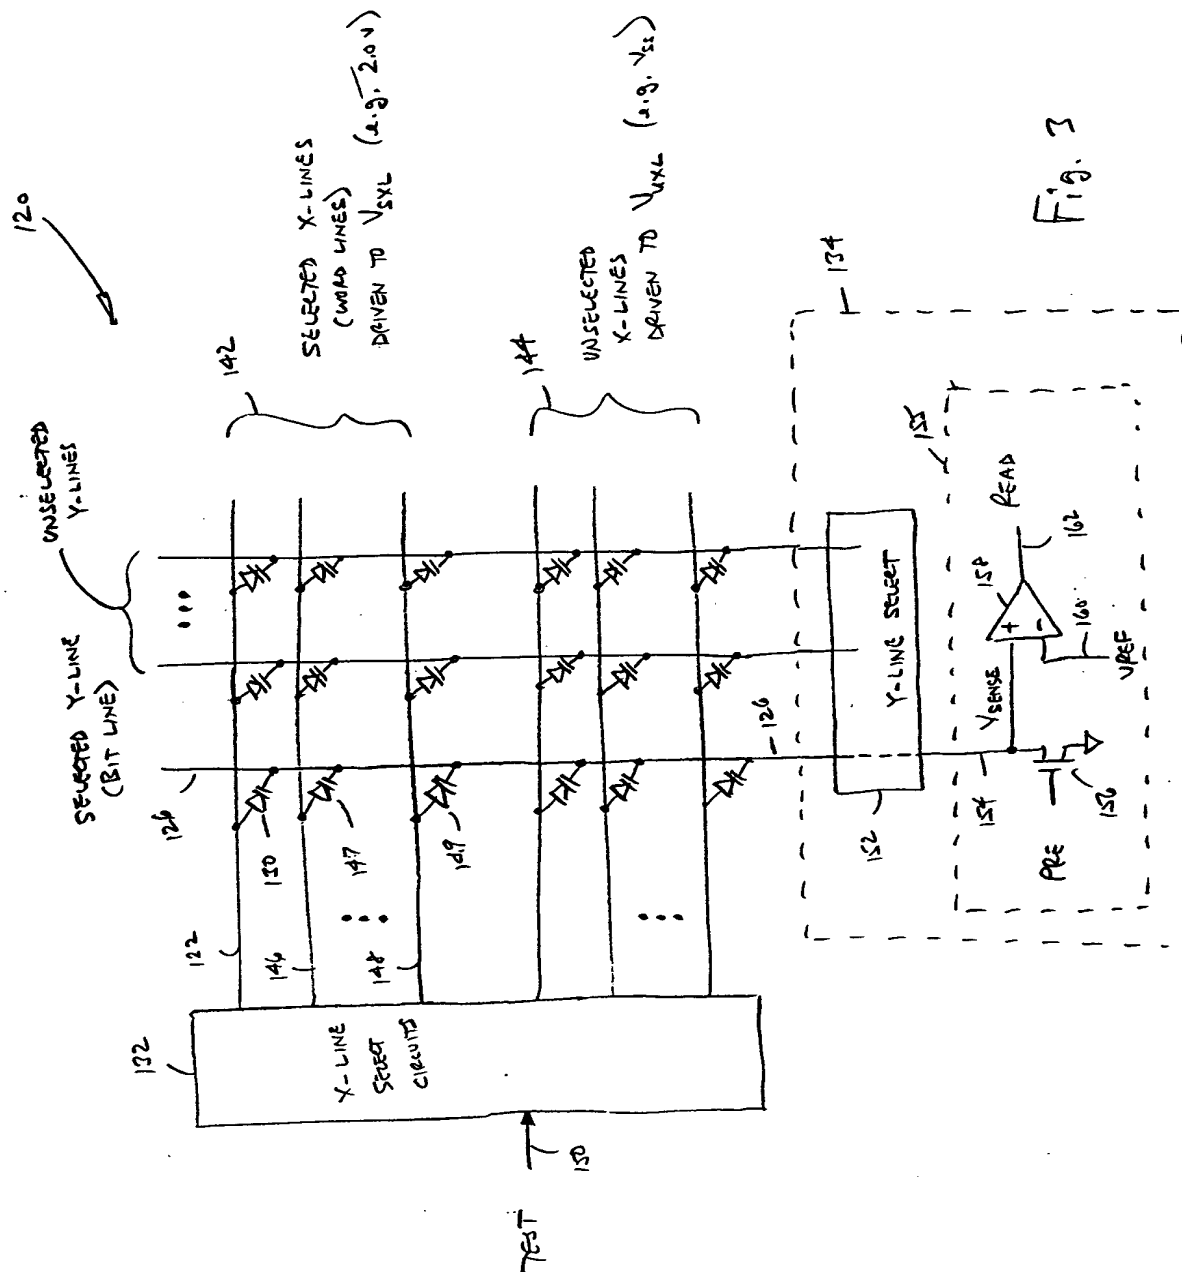 120
UNSELECTED
Y-LINES
SELECTED Y-LINE
(BIT LINE)
126
142
SELECTED X-LINES
(WORD LINES)
DRIVEN TO VSXL (e.g. 2.0V)
144
UNSELECTED
X-LINES
DRIVEN TO VUXL (e.g. VSS)
132
122
146
148
130
147
149
X-LINE
SELECT
CIRCUITS
TEST
150
126
134
152
Y-LINE SELECT
155
154
VSENSE
+
-
158
READ
162
160
VREF
PRE
156
Fig. 3